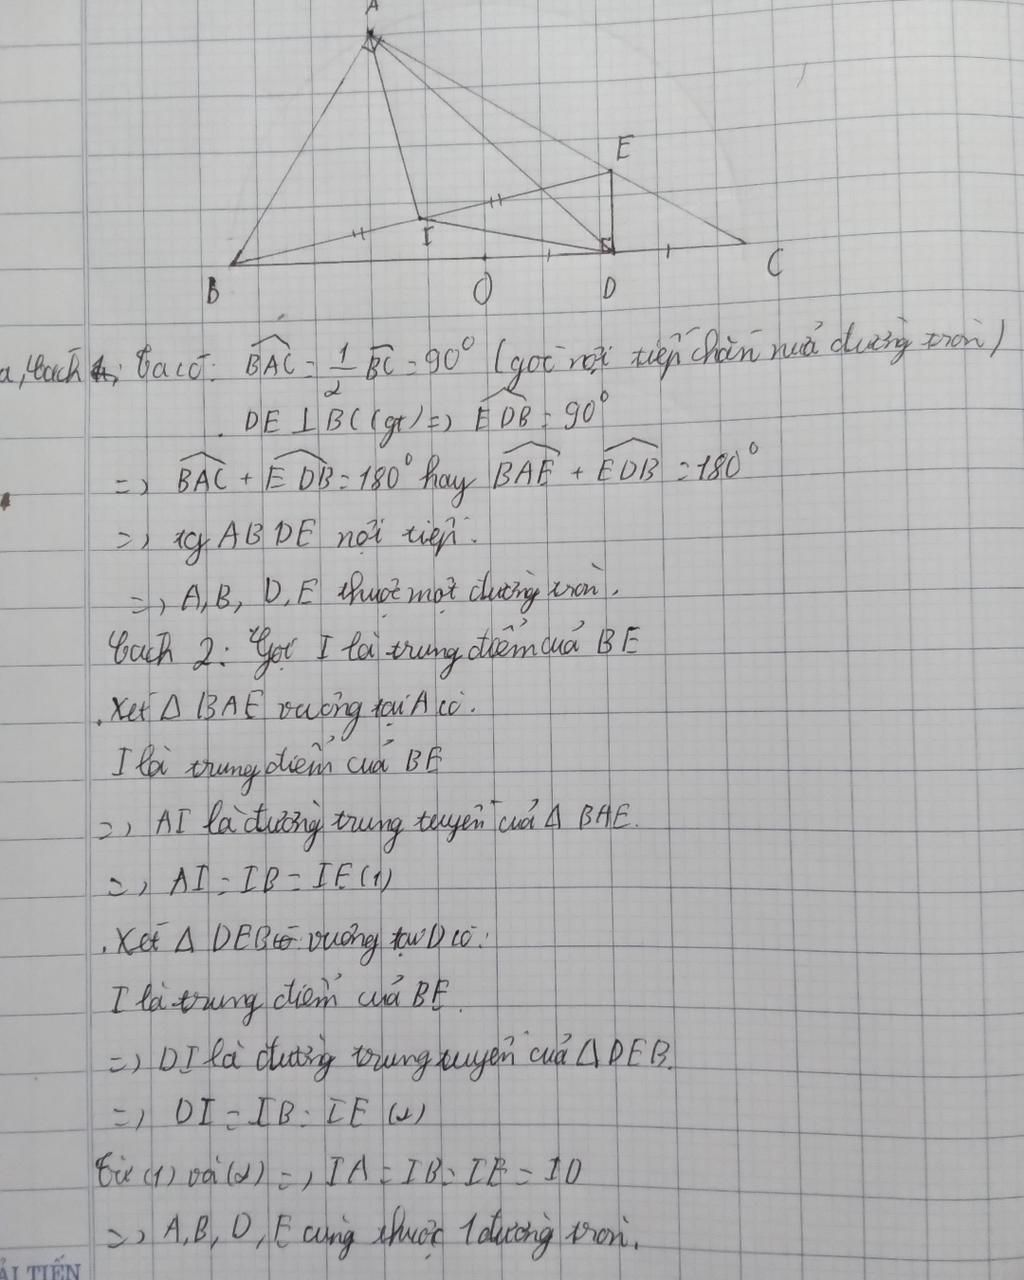 A
E
I
B
O
D
C
a, Cách 1: Ta có: BAC = 1/2 BC = 90° (góc nội tiếp chắn nửa đường tròn)
DE ⊥ BC (gt) => EDB = 90°
=> BAC + EDB = 180° hay BAE + EDB = 180°
=> tg ABDE nội tiếp.
=> A, B, D, E thuộc một đường tròn.
Cách 2: Gọi I là trung điểm của BE
. Xét Δ BAE vuông tại A có.
I là trung điểm của BE
=> AI là đường trung tuyến của Δ BAE.
=> AI = IB = IE (1)
. Xét Δ DEB vuông tại D có:
I là trung điểm của BE.
=> DI là đường trung tuyến của Δ DEB.
=> DI = IB = IE (2)
Từ (1) và (2) => IA = IB = IE = ID
=> A, B, D, E cùng thuộc 1 đường tròn.
ẢI TIẾN